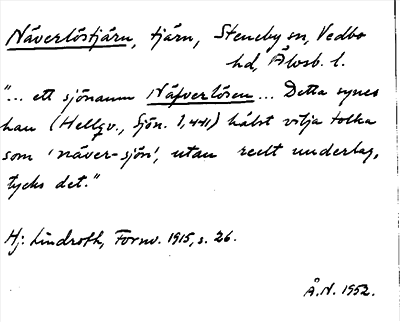 Näverlöstjärn, tjärn, Steneby sn, Vedbo
hd, Älvsb. l.
"... ett sjönamn Näfverlösen ... Detta synes
han (Hellqv., Sjön. 1,441) hälst vilja tolka
som 'näver-sjön', utan reelt underlag,
tycks det."
Hj: Lindroth, Fornv. 1915, s. 26.
Å.N. 1952.